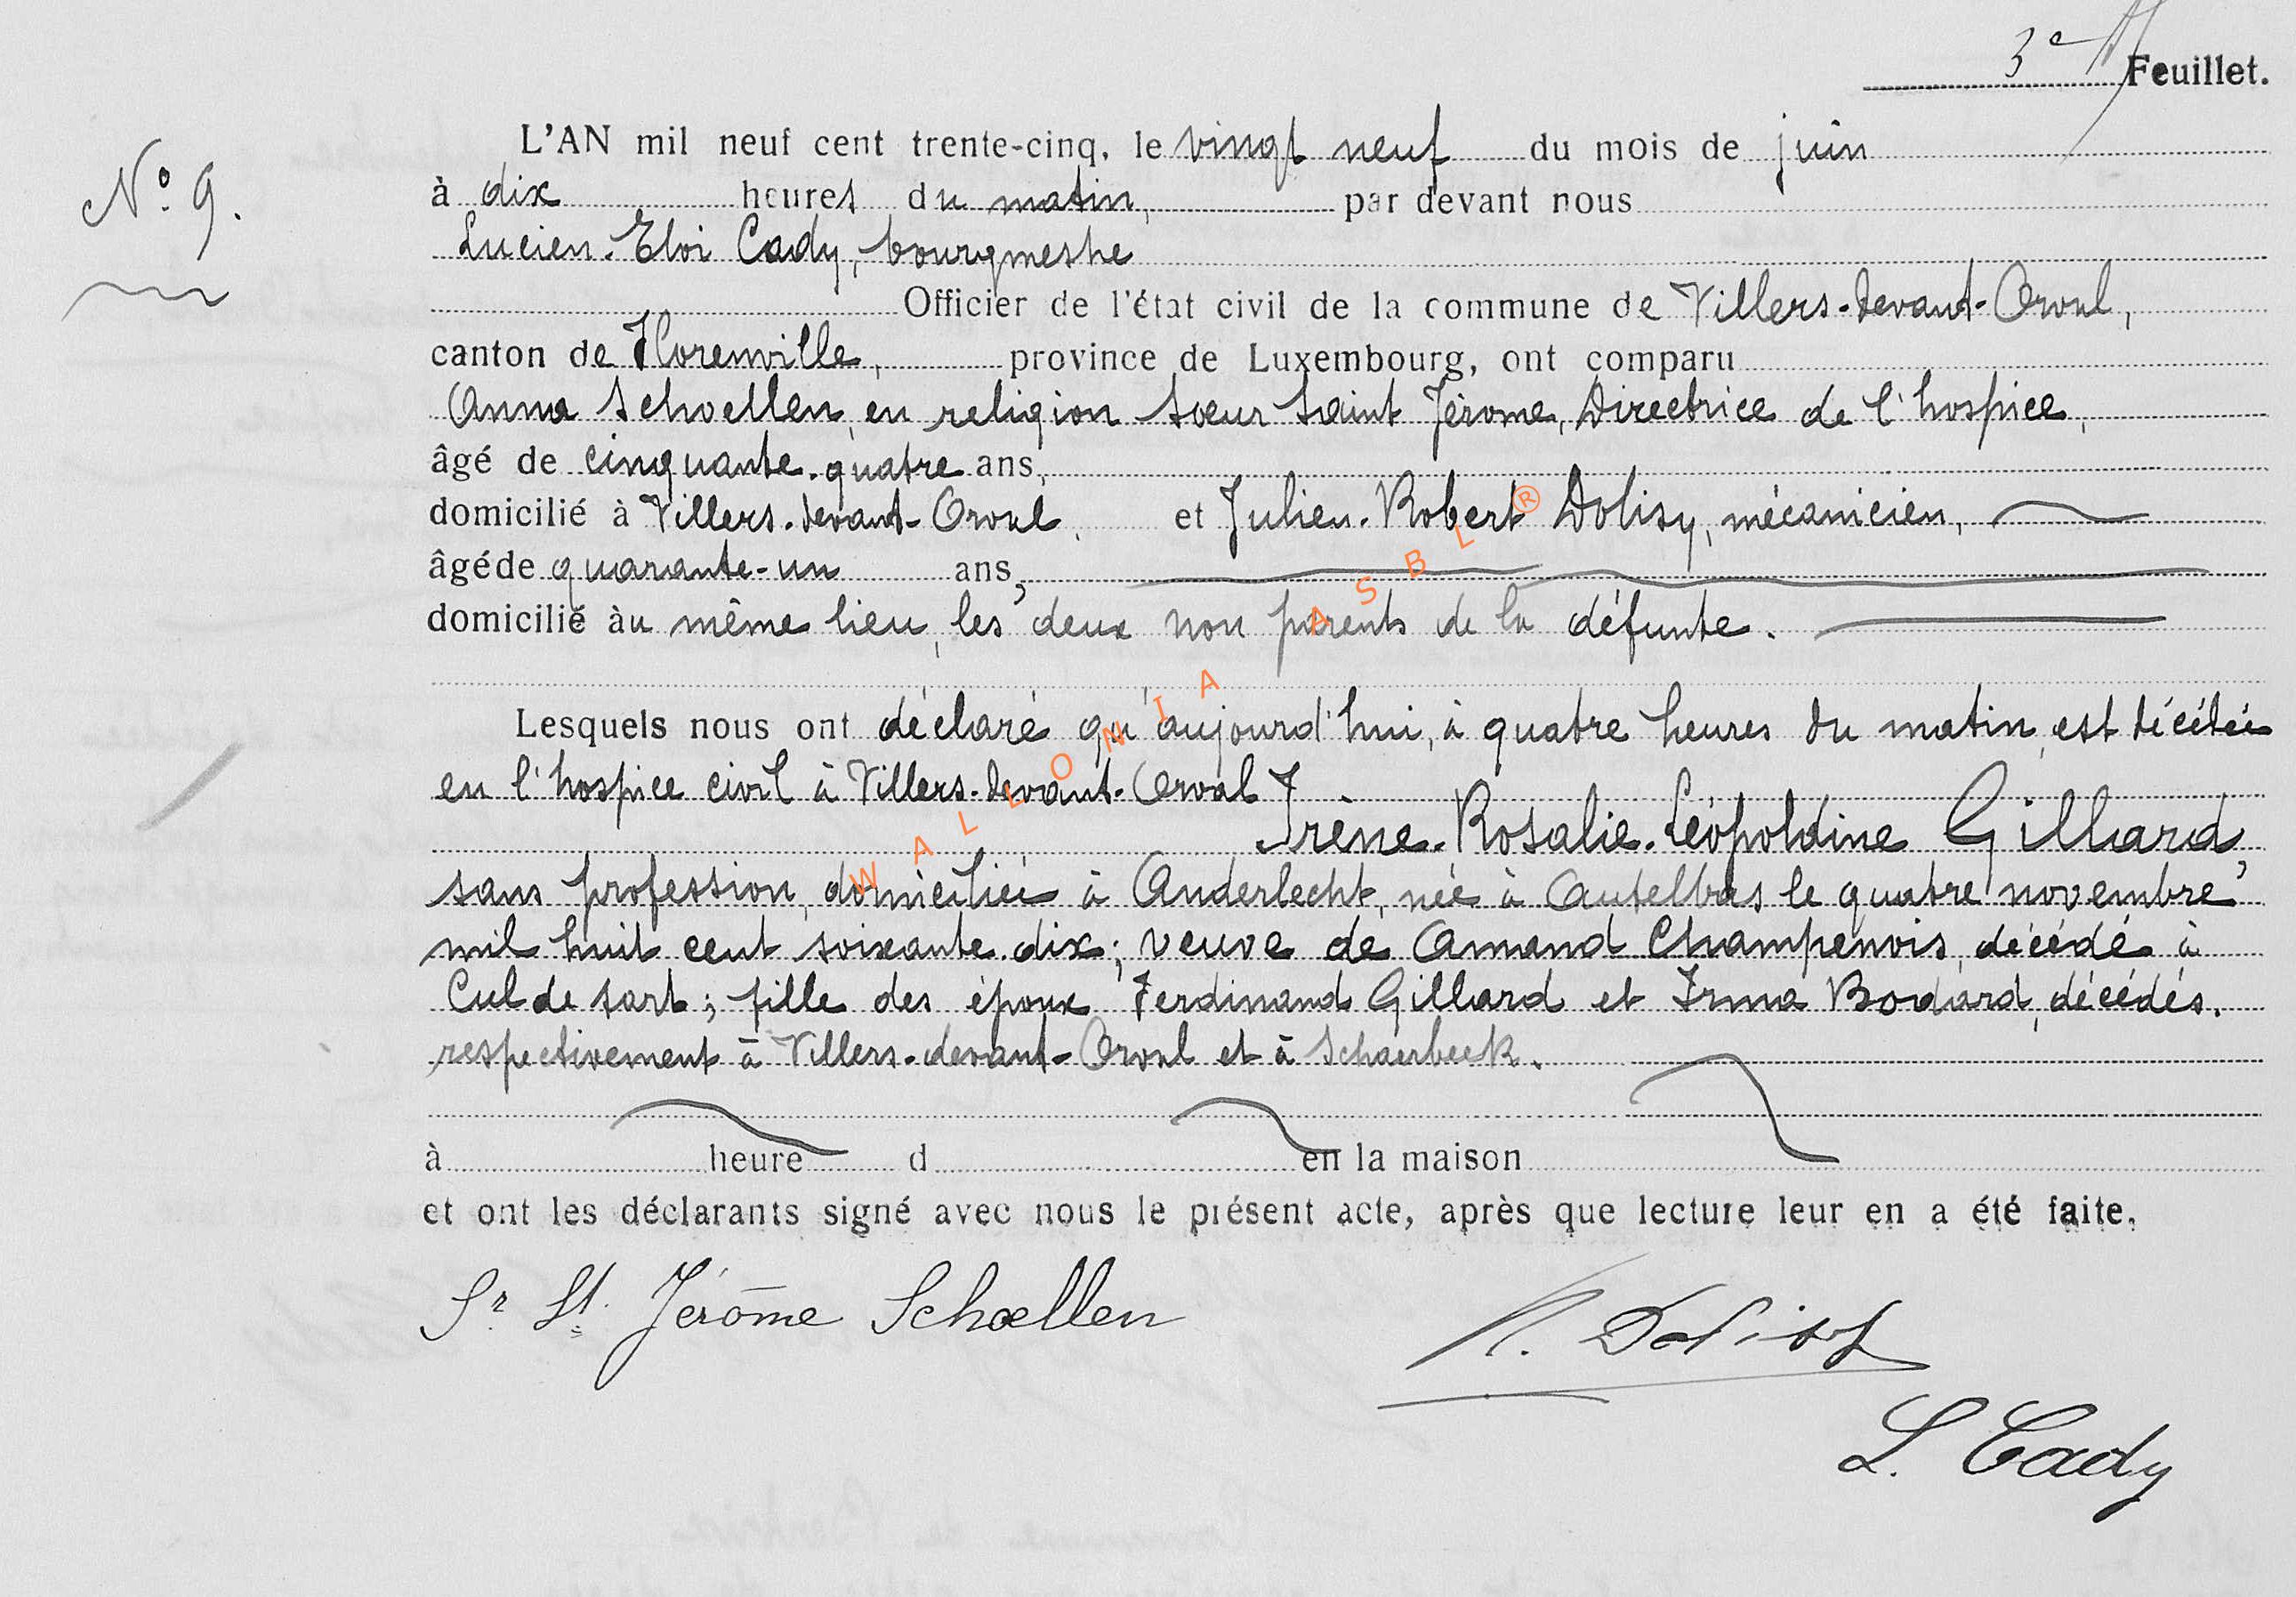 3e Feuillet.
N° 9.
L'AN mil neuf cent trente-cinq, le vingt neuf du mois de juin
à dix heures du matin, par devant nous
Lucien-Eloi Cady, bourgmestre
Officier de l'état civil de la commune de Villers-devant-Orval,
canton de Florenville, province de Luxembourg, ont comparu
Anna Schoellen, en religion soeur Saint Jérome, Directrice de l'hospice,
âgé de cinquante-quatre ans,
domicilié à Villers-devant-Orval, et Julien-Robert Dolisy, mécanicien,
âgé de quarante-un ans,
domicilié au même lieu, les deux non parents de la défunte.
Lesquels nous ont déclaré qu'aujourd'hui, à quatre heures du matin, est décédée
en l'hospice civil à Villers-devant-Orval
Irène-Rosalie-Léopoldine Gillard,
sans profession, domiciliée à Anderlecht, née à Autelbas le quatre novembre
mil huit cent soixante-dix; veuve de Amand Champenois, décédé à
Cul de sart; fille des époux Ferdinand Gillard et Irma Bodard, décédés.
respectivement à Villers-devant-Orval et à Schaerbeek.
à heure d en la maison
et ont les déclarants signé avec nous le présent acte, après que lecture leur en a été faite.
Sr St. Jérôme Schoellen
R. Dolisy
L. Cady
WALLONIA ASBL ®